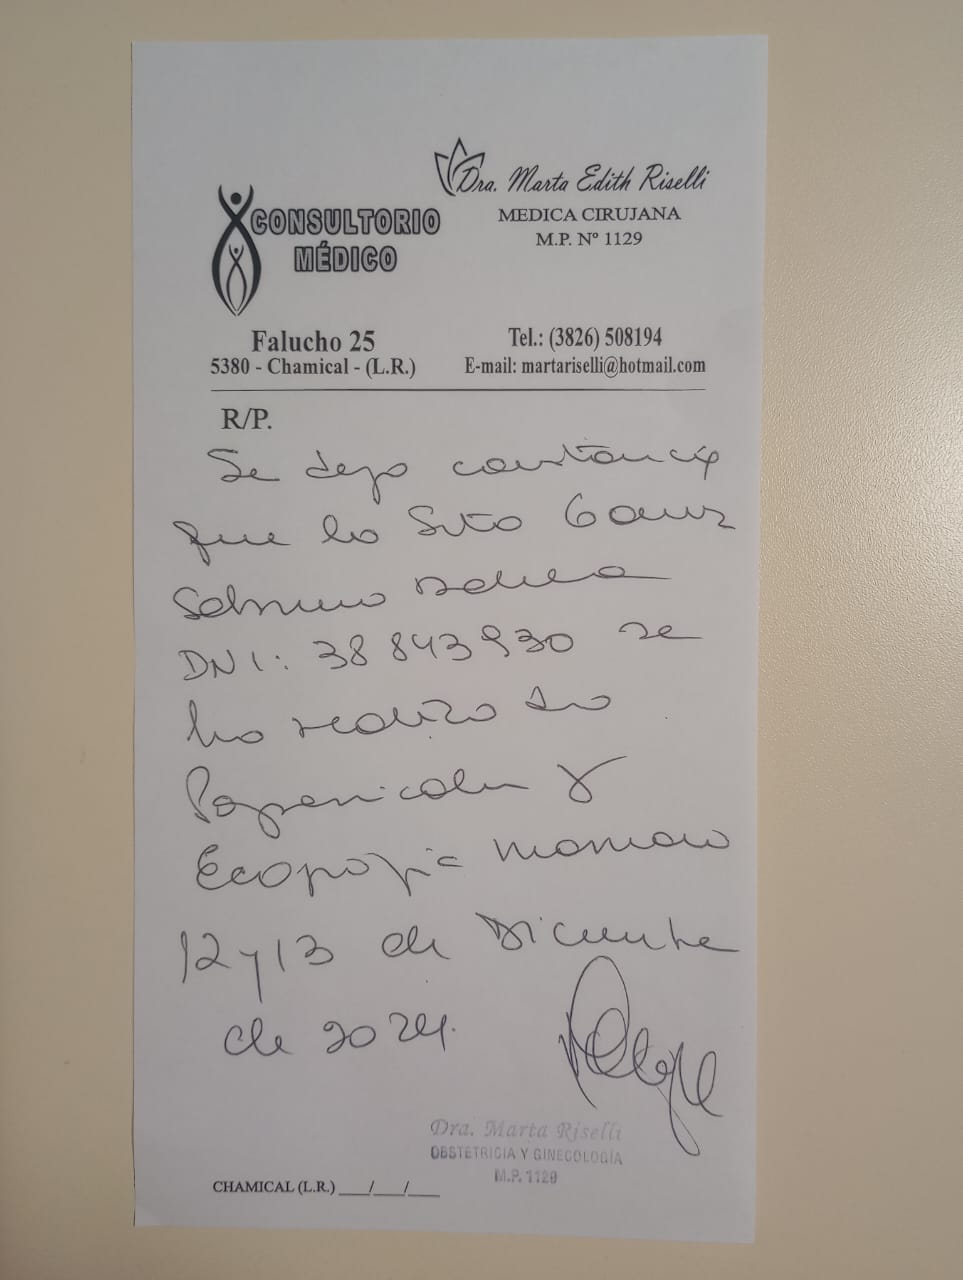 Dra. Marta Edith Riselli
MEDICA CIRUJANA
M.P. Nº 1129
CONSULTORIO
MÉDICO
Falucho 25
5380 - Chamical - (L.R.)
Tel.: (3826) 508194
E-mail: martariselli@hotmail.com
R/P.
Se deja constancia
que la Srta
DNI: 38843930 se
ha realizado
Papanicolau y
Ecografia mamaria
12 y 13 de Diciembre
de 2024.
Dra. Marta Riselli
OBSTETRICIA Y GINECOLOGÍA
M.P. 1129
CHAMICAL (L.R.) ___/___/___